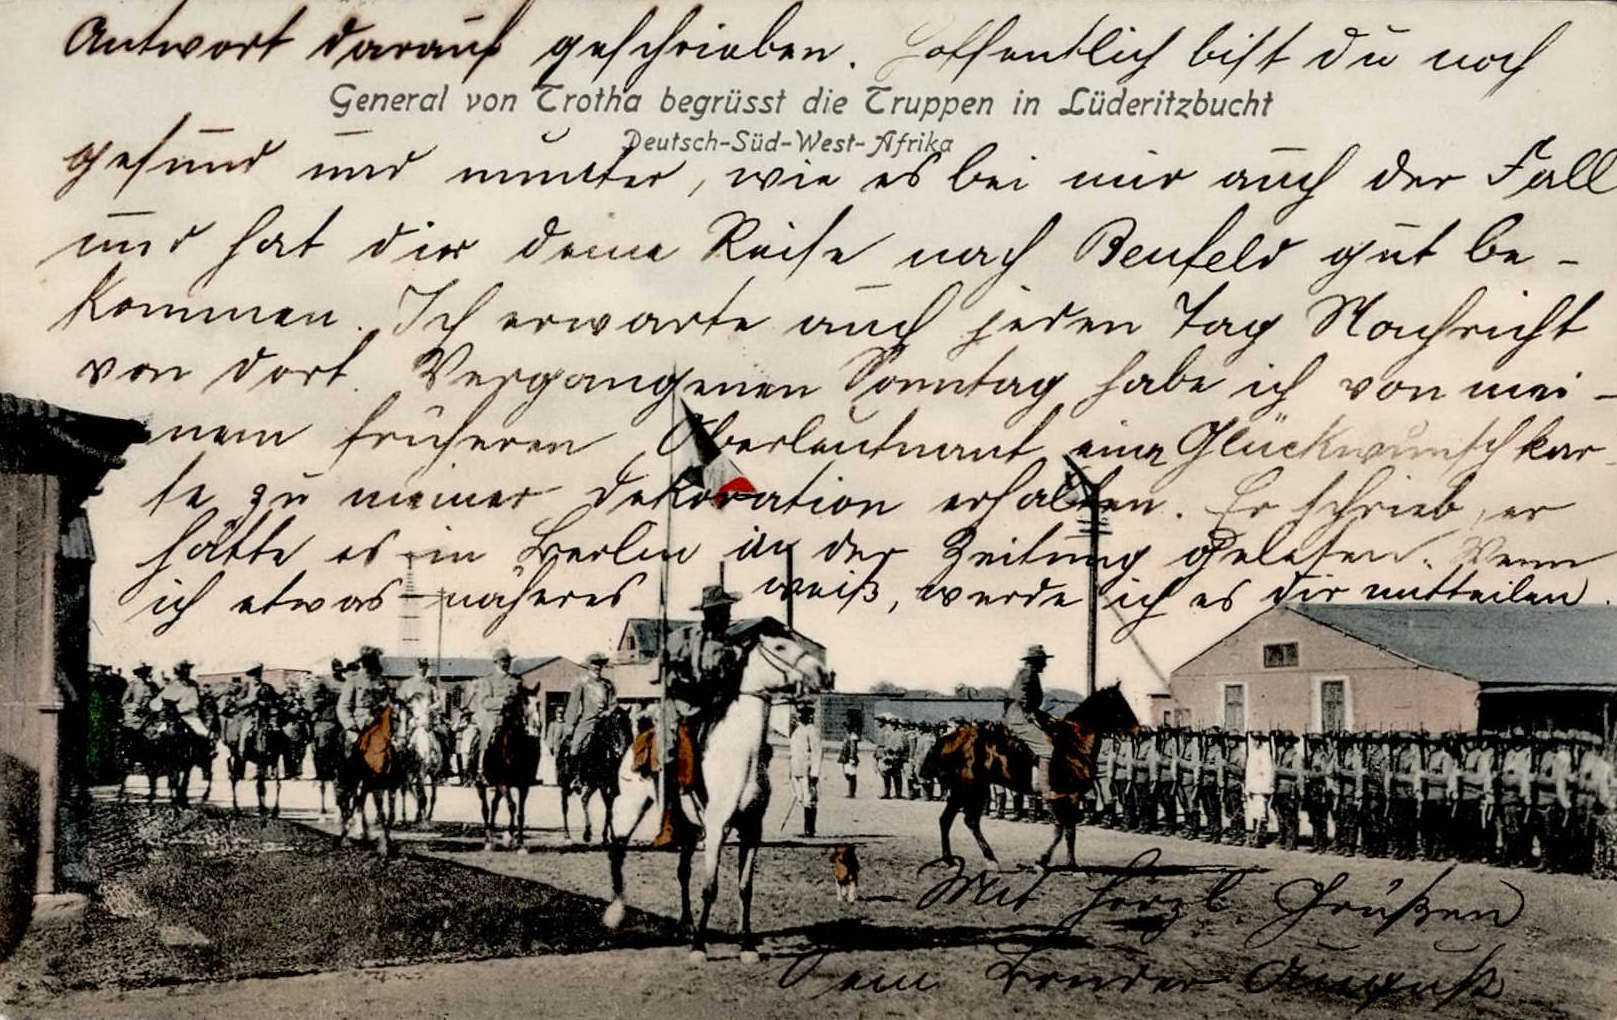 Antwort darauf geschrieben. Hoffentlich bist du noch
General von Trotha begrüsst die Truppen in Lüderitzbucht
Deutsch-Süd-West-Afrika
gesund und munter, wie es bei mir auch der Fall
und hat dir deine Reise nach Benfeld gut be-
kommen. Ich erwarte auch jeden Tag Nachricht
von dort. Vergangenen Sonntag habe ich von mei-
nem früheren Oberleutnant eine Glückwunschkar-
te zu meiner Dekoration erhalten. Er schrieb, er
hätte es in Berlin in der Zeitung gelesen. Wenn
ich etwas näheres weiß, werde ich es dir mitteilen.
Mit herzl. Grüßen
Dein Bruder August